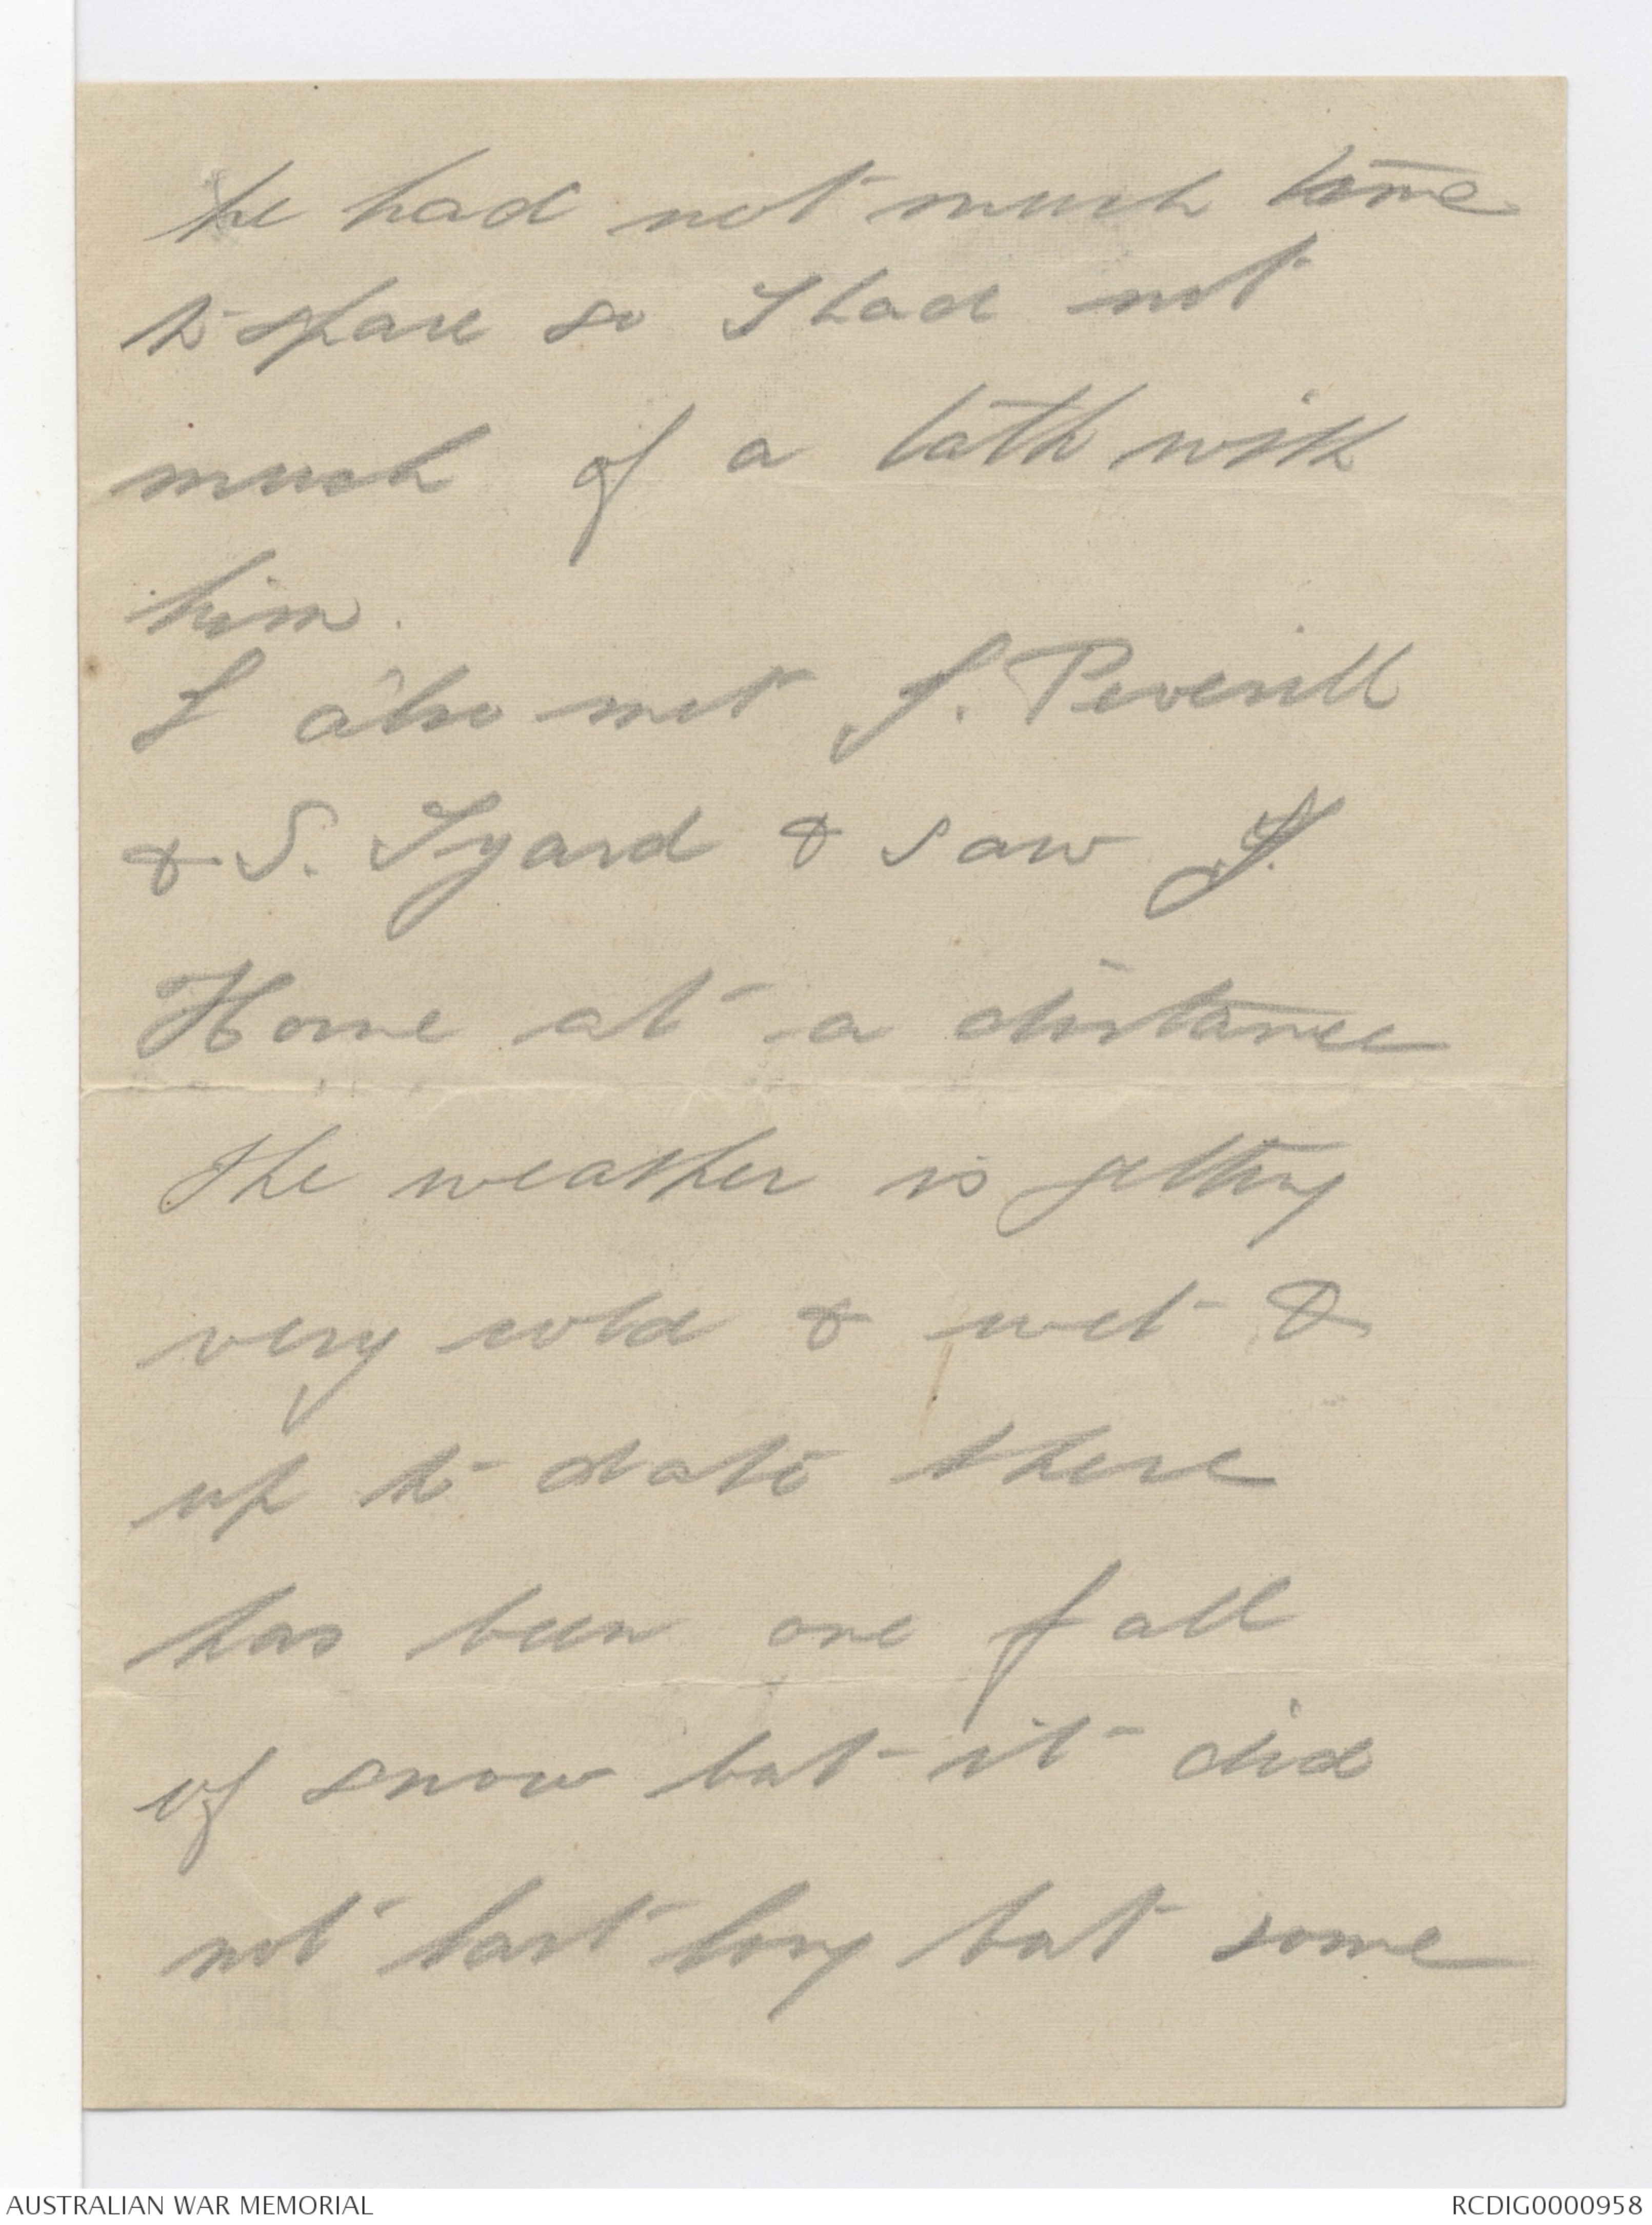 he had not much time
to spare so I had not
much of a talk with
him.
I also met J. Peverill
& S. Tyard & saw J.
Horne at a distance
The weather is getting
very cold & wet &
up to date there
has been one fall
of snow but it did
not last long but some
AUSTRALIAN WAR MEMORIAL
RCDIG0000958